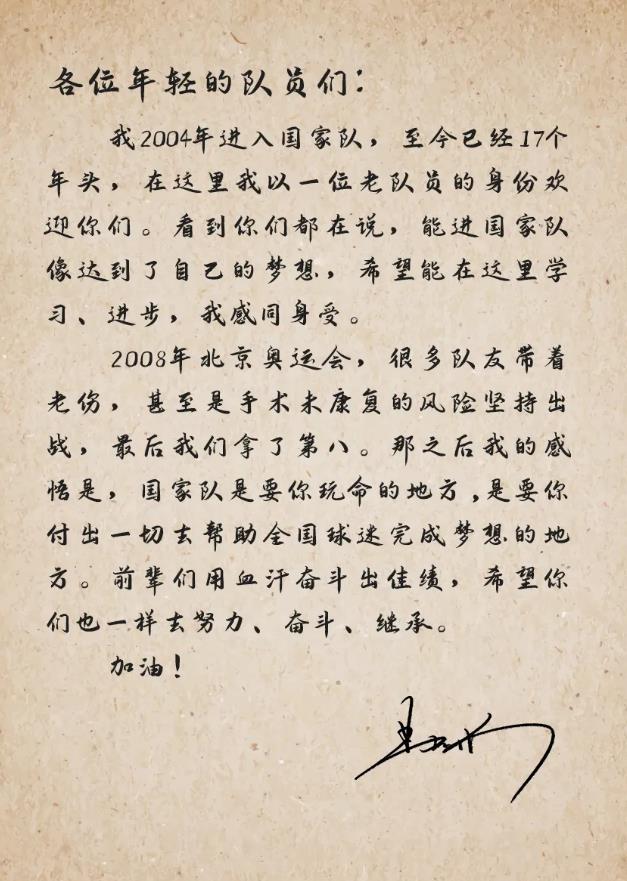 各位年轻的队员们：
我2004年进入国家队，至今已经17个
年头，在这里我以一位老队员的身份欢
迎你们。看到你们都在说，能进国家队
像达到了自己的梦想，希望能在这里学
习、进步，我感同身受。
2008年北京奥运会，很多队友带着
老伤，甚至是手术未康复的风险坚持出
战，最后我们拿了第八。那之后我的感
悟是，国家队是要你玩命的地方,是要你
付出一切去帮助全国球迷完成梦想的地
方。前辈们用血汗奋斗出佳绩，希望你
们也一样去努力、奋斗、继承。
加油！